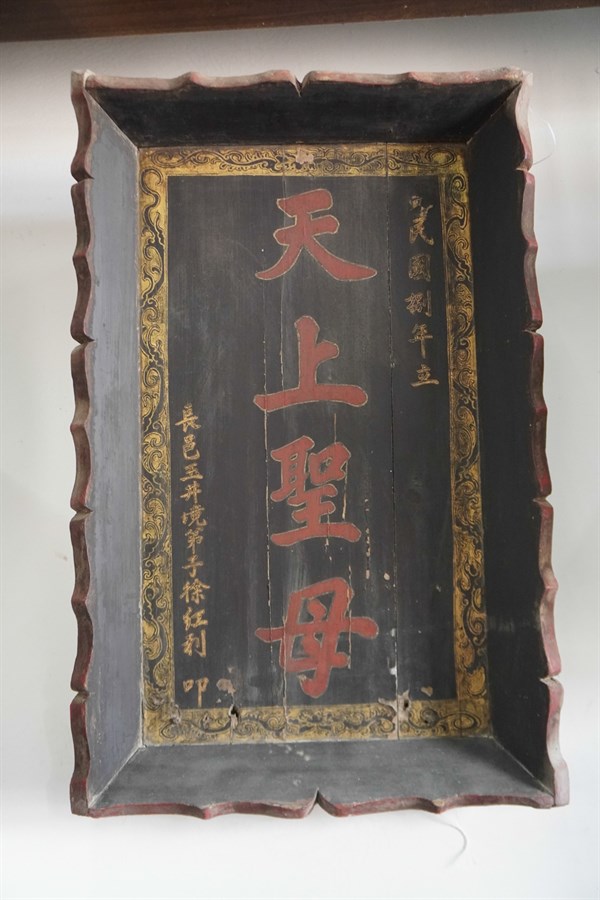 民國捌年立
天上聖母
長邑玉井境弟子徐紅利叩